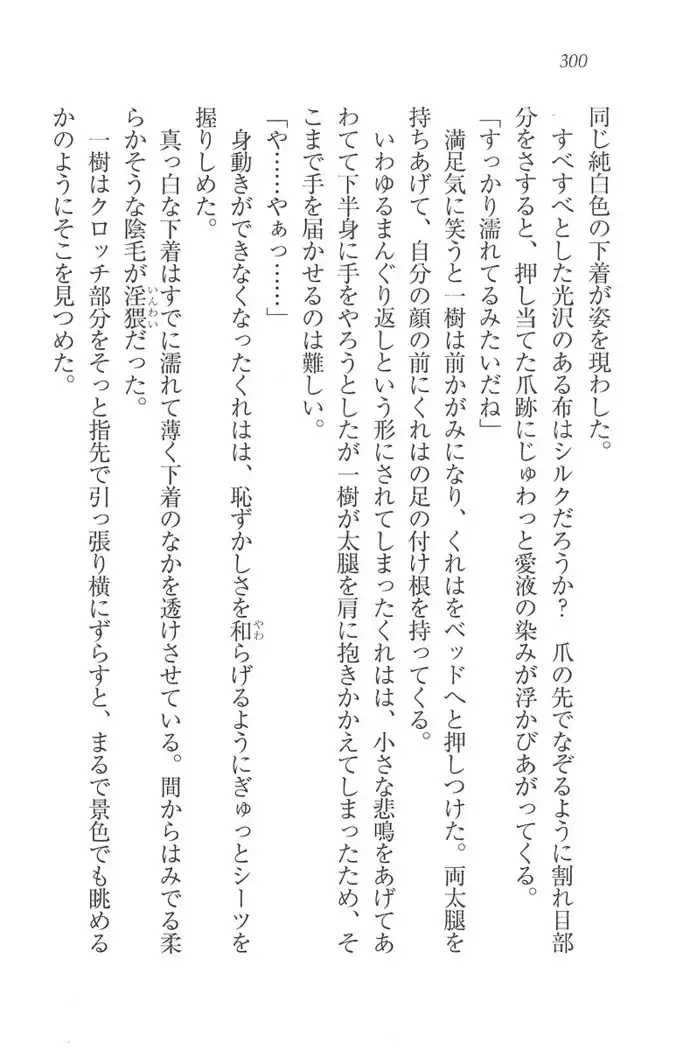 300
同じ純白色の下着が姿を現わした。
すべすべとした光沢のある布はシルクだろうか？　爪の先でなぞるように割れ目部
分をさすると、押し当てた爪跡にじゅわっと愛液の染みが浮かびあがってくる。
「すっかり濡れてるみたいだね」
満足気に笑うと一樹は前かがみになり、くれはをベッドへと押しつけた。両太腿を
持ちあげて、自分の顔の前にくれはの足の付け根を持ってくる。
いわゆるまんぐり返しという形にされてしまったくれはは、小さな悲鳴をあげてあ
わてて下半身に手をやろうとしたが一樹が太腿を肩に抱きかかえてしまったため、そ
こまで手を届かせるのは難しい。
「や……やぁっ……」
身動きができなくなったくれはは、恥ずかしさを和らげるようにぎゅっとシーツを
やわ
握りしめた。
真っ白な下着はすでに濡れて薄く下着のなかを透けさせている。間からはみでる柔
らかそうな陰毛が淫猥だった。
いんわい
一樹はクロッチ部分をそっと指先で引っ張り横にずらすと、まるで景色でも眺める
かのようにそこを見つめた。